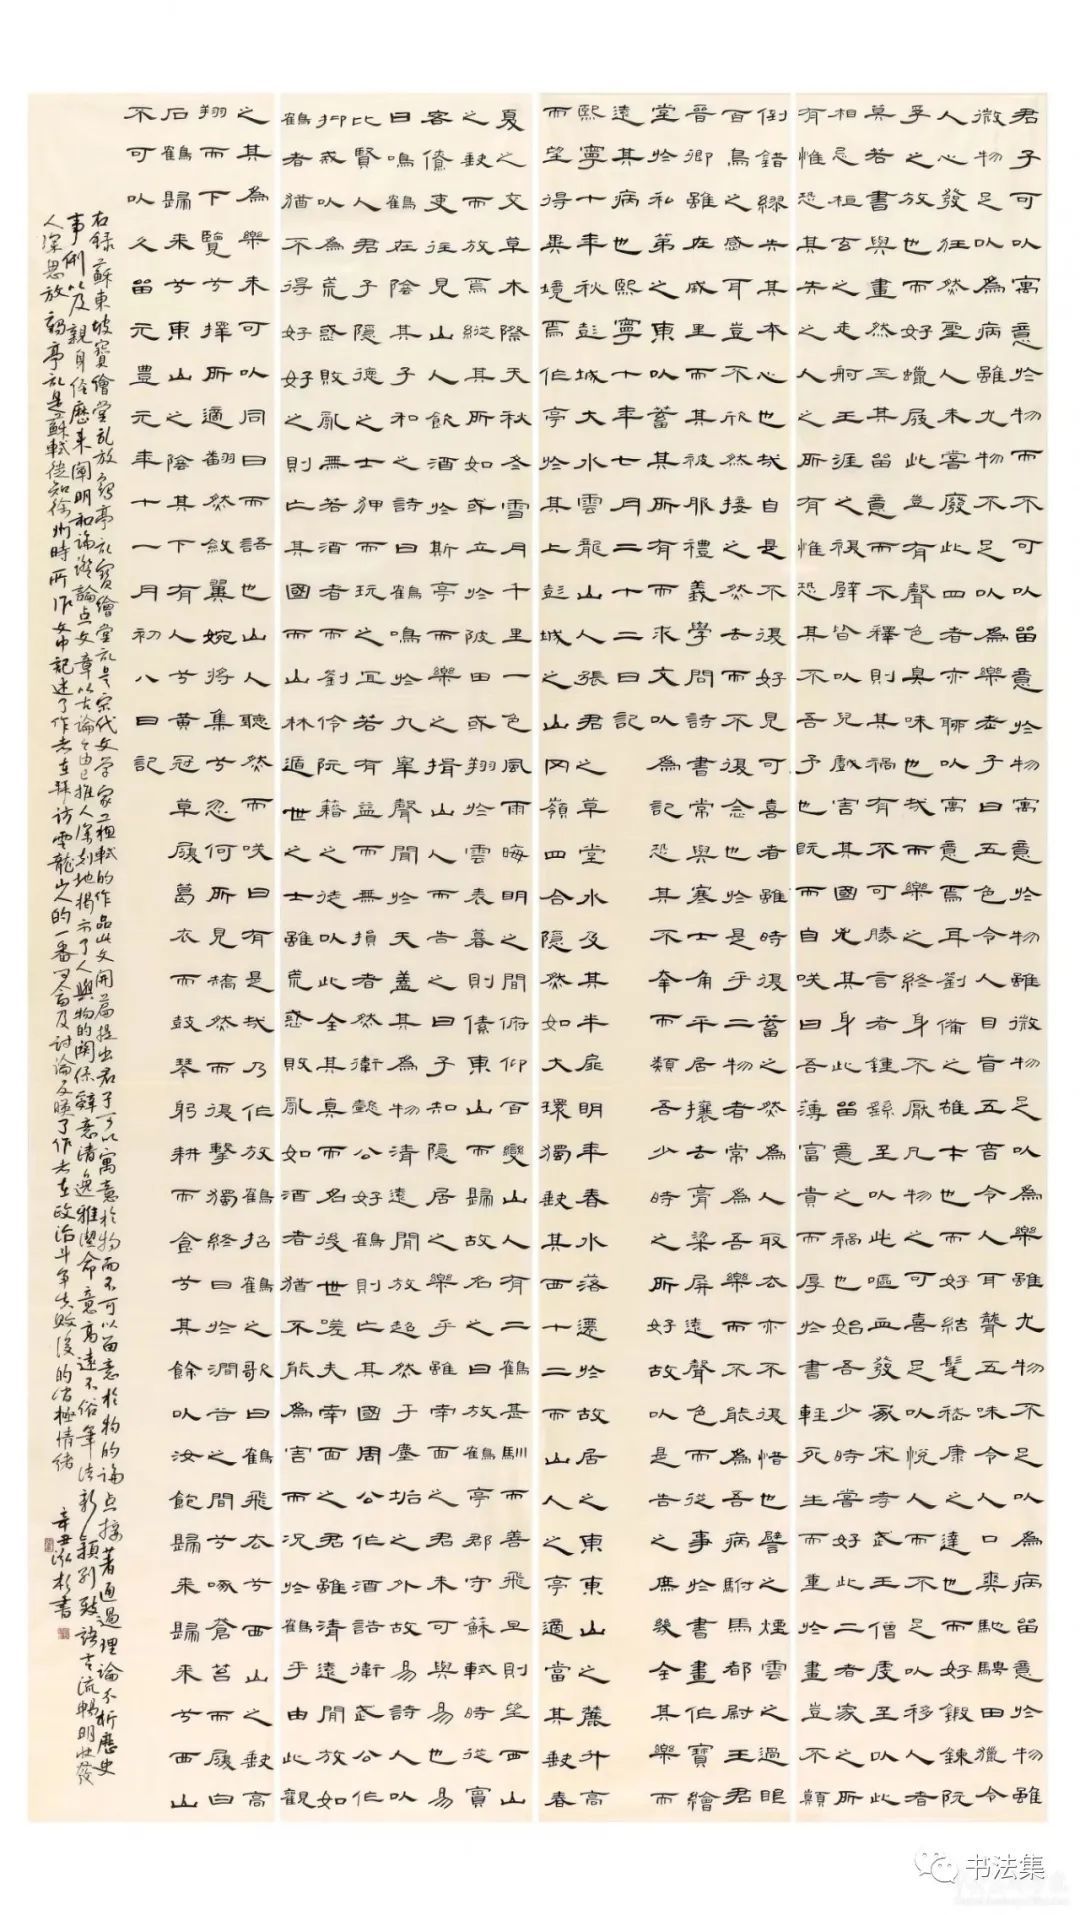 君子可以寓意於物而不可以留意於物寓意於物雖微物足以為樂雖尤物不足以為病留意於物雖
微物足以為病雖尤物不足以為樂老子曰五色令人目盲五音令人耳聾五味令人口爽馳騁田獵令
人心發狂然聖人未嘗廢此四者亦聊以寓意焉耳劉備之雄才也而好結髦嵇康之達也而好鍛鍊阮
孚之放也而好蠟屐此豈有聲色臭味也哉而樂之終身不厭凡物之可喜足以悅人而不足以移人者
莫若書與畫然至其留意而不釋則其禍有不可勝言者鍾繇至以此嘔血發冢宋孝武王僧虔至以此
相忌桓玄之走舸王涯之複壁皆以兒戲害其國兇其身此留意之禍也始吾少時嘗好此二者家之所
有惟恐其失之人之所有惟恐其不吾予也既而自笑曰吾薄富貴而厚於書輕死生而重於畫豈不顛
倒錯繆失其本心也哉自是不復好見可喜者雖時復蓄之然為人取去亦不復惜也譬之煙雲之過眼
百鳥之感耳豈不欣然接之然去而不復念也於是乎二物者常為吾樂而不能為吾病駙馬都尉王君
晉卿雖在戚里而其被服禮義學問詩書常與寒士角平居攘去膏粱屏遠聲色而從事於書畫作寶繪
堂於私第之東以蓄其所有而求文以為記恐其不幸而類吾少時之所好故以是告之庶幾全其樂而
遠其病也熙寧十年七月二十二日記
熙寧十年秋彭城大水雲龍山人張君之草堂水及其半扉明年春水落遷於故居之東東山之麓升高
而望得異境焉作亭於其上彭城之山岡嶺四合隱然如大環獨缺其西十二而山人之亭適當其缺春
夏之交草木際天秋冬雪月千里一色風雨晦明之間俯仰百變山人有二鶴甚馴而善飛旦則望西山
之缺而放焉縱其所如或立於陂田或翔於雲表暮則傃東山而歸故名之曰放鶴亭郡守蘇軾時從賓
客僚吏往見山人飲酒於斯亭而樂之揖山人而告之曰子知隱居之樂乎雖南面之君未可與易也易
曰鳴鶴在陰其子和之詩曰鶴鳴於九皋聲聞於天蓋其為物清遠閒放超然于塵垢之外故易詩人以
比賢人君子隱德之士狎而玩之宜若有益而無損者然衛懿公好鶴則亡其國周公作酒誥衛武公作
抑戒以為荒惑敗亂無若酒者而劉伶阮籍之徒以此全其真而名後世嗟夫南面之君雖清遠閒放如
鶴者猶不得好好之則亡其國而山林遁世之士雖荒惑敗亂如酒者猶不能為害而況於鶴乎由此觀
之其為樂未可以同日而語也山人聽然而笑曰有是哉乃作放鶴招鶴之歌曰鶴飛去兮西山之缺高
翔而下覽兮擇所適翻然斂翼婉將集兮忽何所見矯然而復擊獨終日於澗谷之間兮啄蒼苔而履白
石鶴歸來兮東山之陰其下有人兮黃冠草屨葛衣而鼓琴躬耕而食兮其餘以汝飽歸來歸來兮西山
不可以久留元豐元年十一月初八日記
右錄蘇東坡寶繪堂記放鶴亭記寶繪堂記是宋代文学家蘇軾的作品此文開篇提出君子可以寓意於物而不可以留意於物的論点接著通過理論分析歷史
事例以及親身经歷来闡明和論證論点文章以古論今由己推人深刻地揭示了人與物的関係辭意清逸雅潔命意高遠不俗筆法新穎別致語言流暢明快發
人深思放鶴亭記是蘇軾徙知徐州時所作文中記述了作者在拜访雲龍山人的一番問荅及討論反映了作者在政治斗争失敗後的消極情绪
辛丑泓杉書
书法集